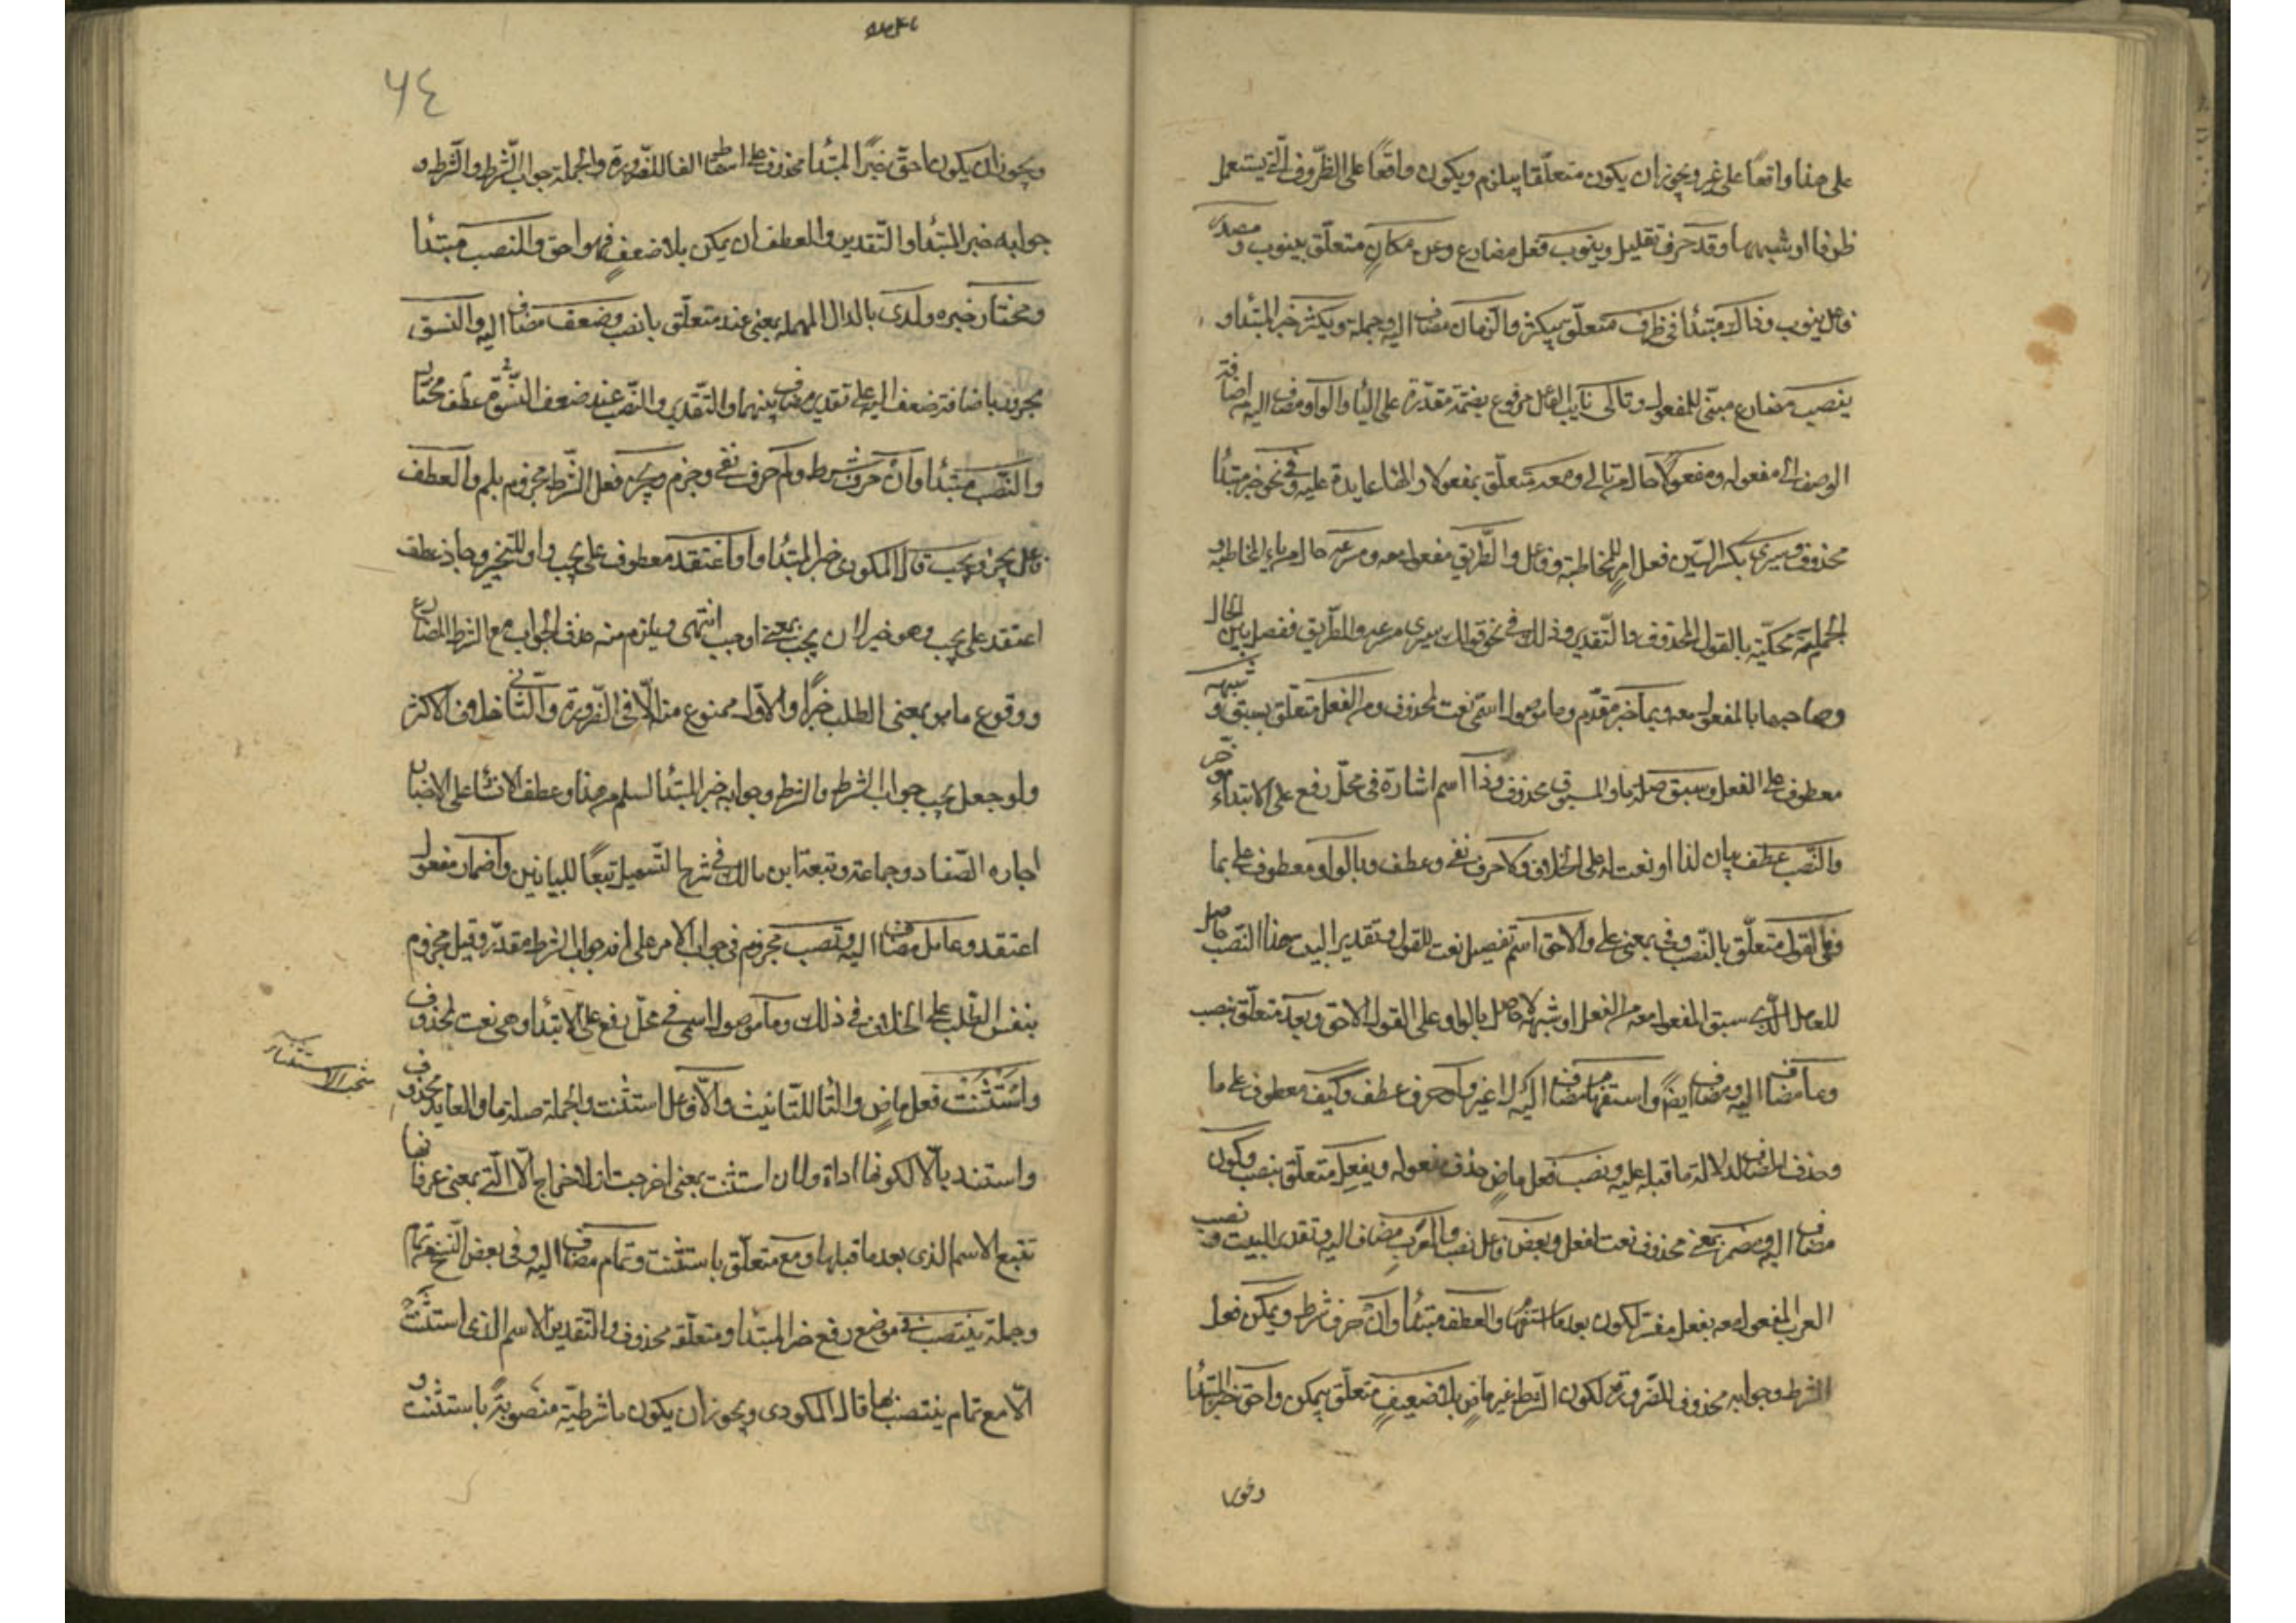 على هذا واقعا على غير ويجوز ان يكون متعلقا بيلزم ويكون واقعا على الظروف التي يستعمل
ظرفا او شبهها وقد حرف تقليل وينوب فعل مضارع وعن مكان متعلق بينوب و مصدر
فاعل ينوب وذاك مبتدأ في ظرف متعلق بيكثر والزمان مضاف اليه وجملة ويكثر خبر المبتدا و
ينصب مضارع مبني للمفعول وتالي نايب الفاعل مرفوع بضمة مقدرة على اليا والواو مضاف اليه اضافة
الوصف الى مفعوله ومفعولا حال من تالي ومعه متعلق بمفعولا والهاء عايدة عليه وفي نحو خبر مبتدا
محذوف وسيري بكسر السين فعل امر للمخاطبة وفاعل والطريق مفعول معه ومسرعه حال من ياء المخاطبة و
الجملة محكية بالقول المحذوف والتقدير وذلك في نحو قولك سيري مسرعه والطريق ففصل بين الحال
وصاحبها بالمفعول معه وبما خبر مقدم وما موصول اسمي نعت لمحذوف ومن الفعل متعلق بسبق و شبهه
معطوف على الفعل وسبق صلة ما والمسبوق محذوف وذا اسم اشارة في محل رفع على الابتداء مؤخر
والنصب عطف بيان لذا او نعت له على الخلاف ولا حرف نفي وعطف وبالواو معطوف على بما
وفي القول متعلق بالنصب وفي بمعنى على والاحق اسم تفضيل نعت للقول وتقدير البيت هذا النصب حاصل
للعامل الذي سبق المفعول معه من الفعل او شبهه لا حاصل بالواو على القول الاحق وبعد متعلق بنصب
وما مضاف اليه ومضاف ايضا واستفهام مضاف اليه لا غير واو حرف عطف وكيف معطوف على ما
وحذف المضاف لدلالة ما قبله عليه ونصب فعل ماض حذف مفعوله وبفعل متعلق بنصب وكون
مضاف اليه ومضمر بمعنى محذوف نعت لفعل وبعض فاعل نصب والعرب مضاف اليه وتقدير البيت ونصب
العرب المفعول معه بفعل مضمر لكون بعد ما استفهام والعطف مبتدأ وان حرف شرط ويمكن فعل
الشرط وجوابه محذوف للضرورة لكون الشرط غير ماض بلا ضعف متعلق بيمكن واحق خبر المبتدا
ويجوز ان يكون احق خبرا لمبتدا محذوف على اسقاط الفا للضرورة والجملة جواب الشرط والشرط و
جوابه خبر المبتدا والتقدير والعطف ان يمكن بلا ضعف فهو احق والنصب مبتدا
ومختار خبره ولدى بالدال المهملة بمعنى عند متعلق بالنصب وضعف مضاف اليه والنسق
مجرور باضافة ضعف اليه على تقدير مضاف بينهما والتقدير والنصب عند ضعف عطف النسق مختار
والنصب مبتدا وان حرف شرط ولم حرف نفي وجزم ويجز فعل الشرط مجزوم بلم والعطف
فاعل يجز ويجب قال المكودى خبر المبتدا واو اعتقد معطوف على يجب واو للتخيير وجاز عطف
اعتقد على يجب وهو خبر لان يجب بمعنى اوجب انتهى ويلزم منه حذف الجواب مع الشرط المضارع
ووقوع ما هو بمعنى الطلب خبرا والاول ممنوع منه الا في الضرورة والثاني خلاف الاكثر
ولو جعل يجب جواب الشرط والشرط وجوابه خبر المبتدا لسلم من هذا وعطف الانشا على الاخبار
اجازه الصفار وجماعة وتبعه ابن مالك في شرح التسهيل تبعا للبيانيين واضمار مفعول
اعتقد وعامل مضاف اليه وتصب مجزوم في جواب الامر على انه جواب الشرط مقدر وقيل مجزوم
بنفس الطلب على الخلاف في ذلك وما موصول اسمي في محل رفع على الابتدا وهي نعت لمحذوف
واستثنت فعل ماض والتا للتانيث والا فاعل استثنت والجملة صلة ما والعايد محذوف
مبحث الاستثناء
واستند بالا لكونها اداة ولان استثنت بمعنى اخرجت اذ لا خراج الا التي بمعنى غير فانها
تتبع الاسم الذى بعدها قبلها ومع متعلق باستثنت وتمام مضاف اليه وفي بعض النسخ
وجملة ينتصب في موضع رفع خبر المبتدا ومتعلقه محذوف والتقدير الاسم الذى استثنت
الا مع تمام ينتصب بها قال المكودى ويجوز ان يكون ما شرطية منصوبة باستثنت و